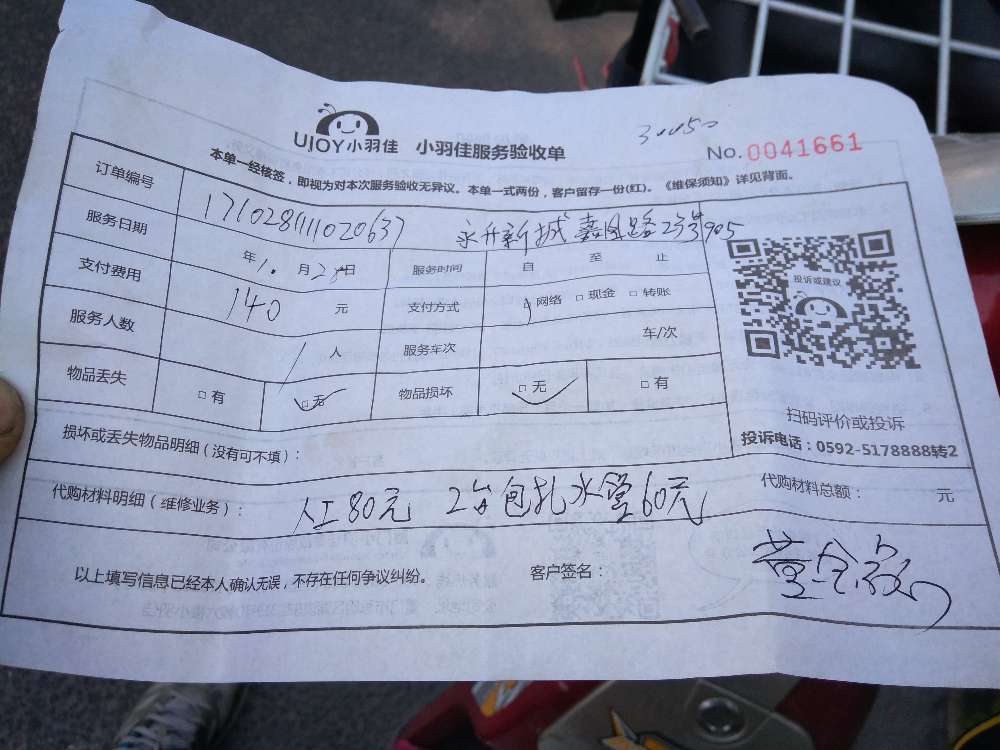 UJOY小羽佳 小羽佳服务验收单
No.0041661
本单一经核签，即视为对本次服务验收无异议。本单一式两份，客户留存一份(红)。《维保须知》详见背面。
订单编号 永升新城 路 905
服务日期 年 月 日 服务时间 自 至 止
支付费用 140 元 支付方式 网络 □ 现金 □ 转账
服务人数 1 人 服务车次 车/次
物品丢失 □ 有 □ 无 物品损坏 □ 无 □ 有
投诉或建议
扫码评价或投诉
投诉电话：0592-5178888转2
损坏或丢失物品明细（没有可不填）：
代购材料明细（维修业务）： 人工80元 2台包扎水管60元 代购材料总额： 元
以上填写信息已经本人确认无误，不存在任何争议纠纷。 客户签名：